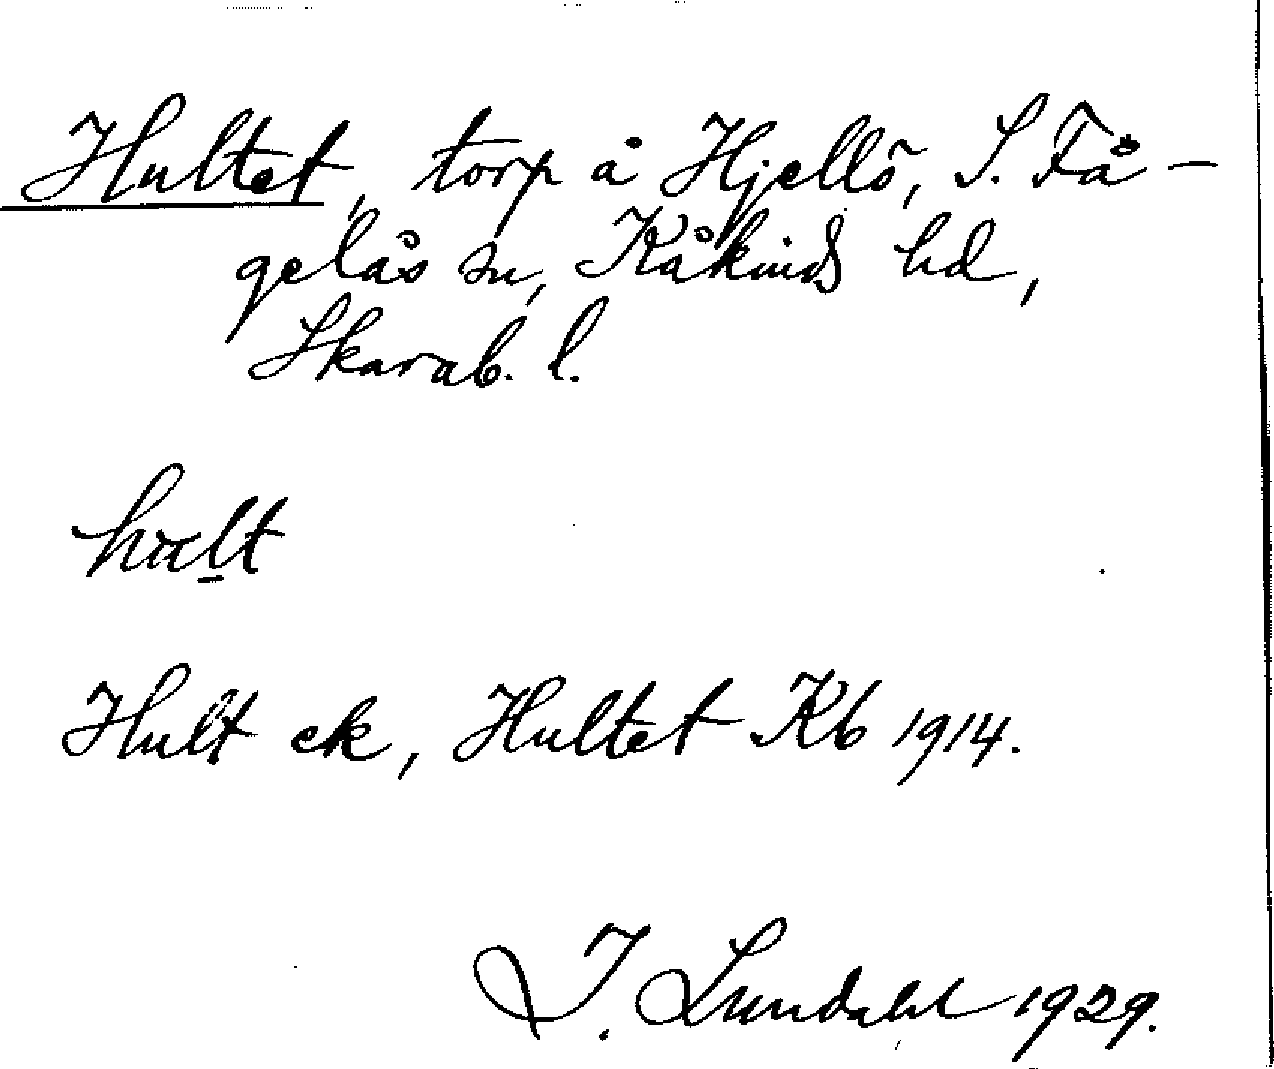 Hultet, torp å Hjellö, S. Få-
gelås sn, Kåkinds hd,
Skarab. l.
hult
Hult ek, Hultet Kb 1914.
I. Lundahl 1929.